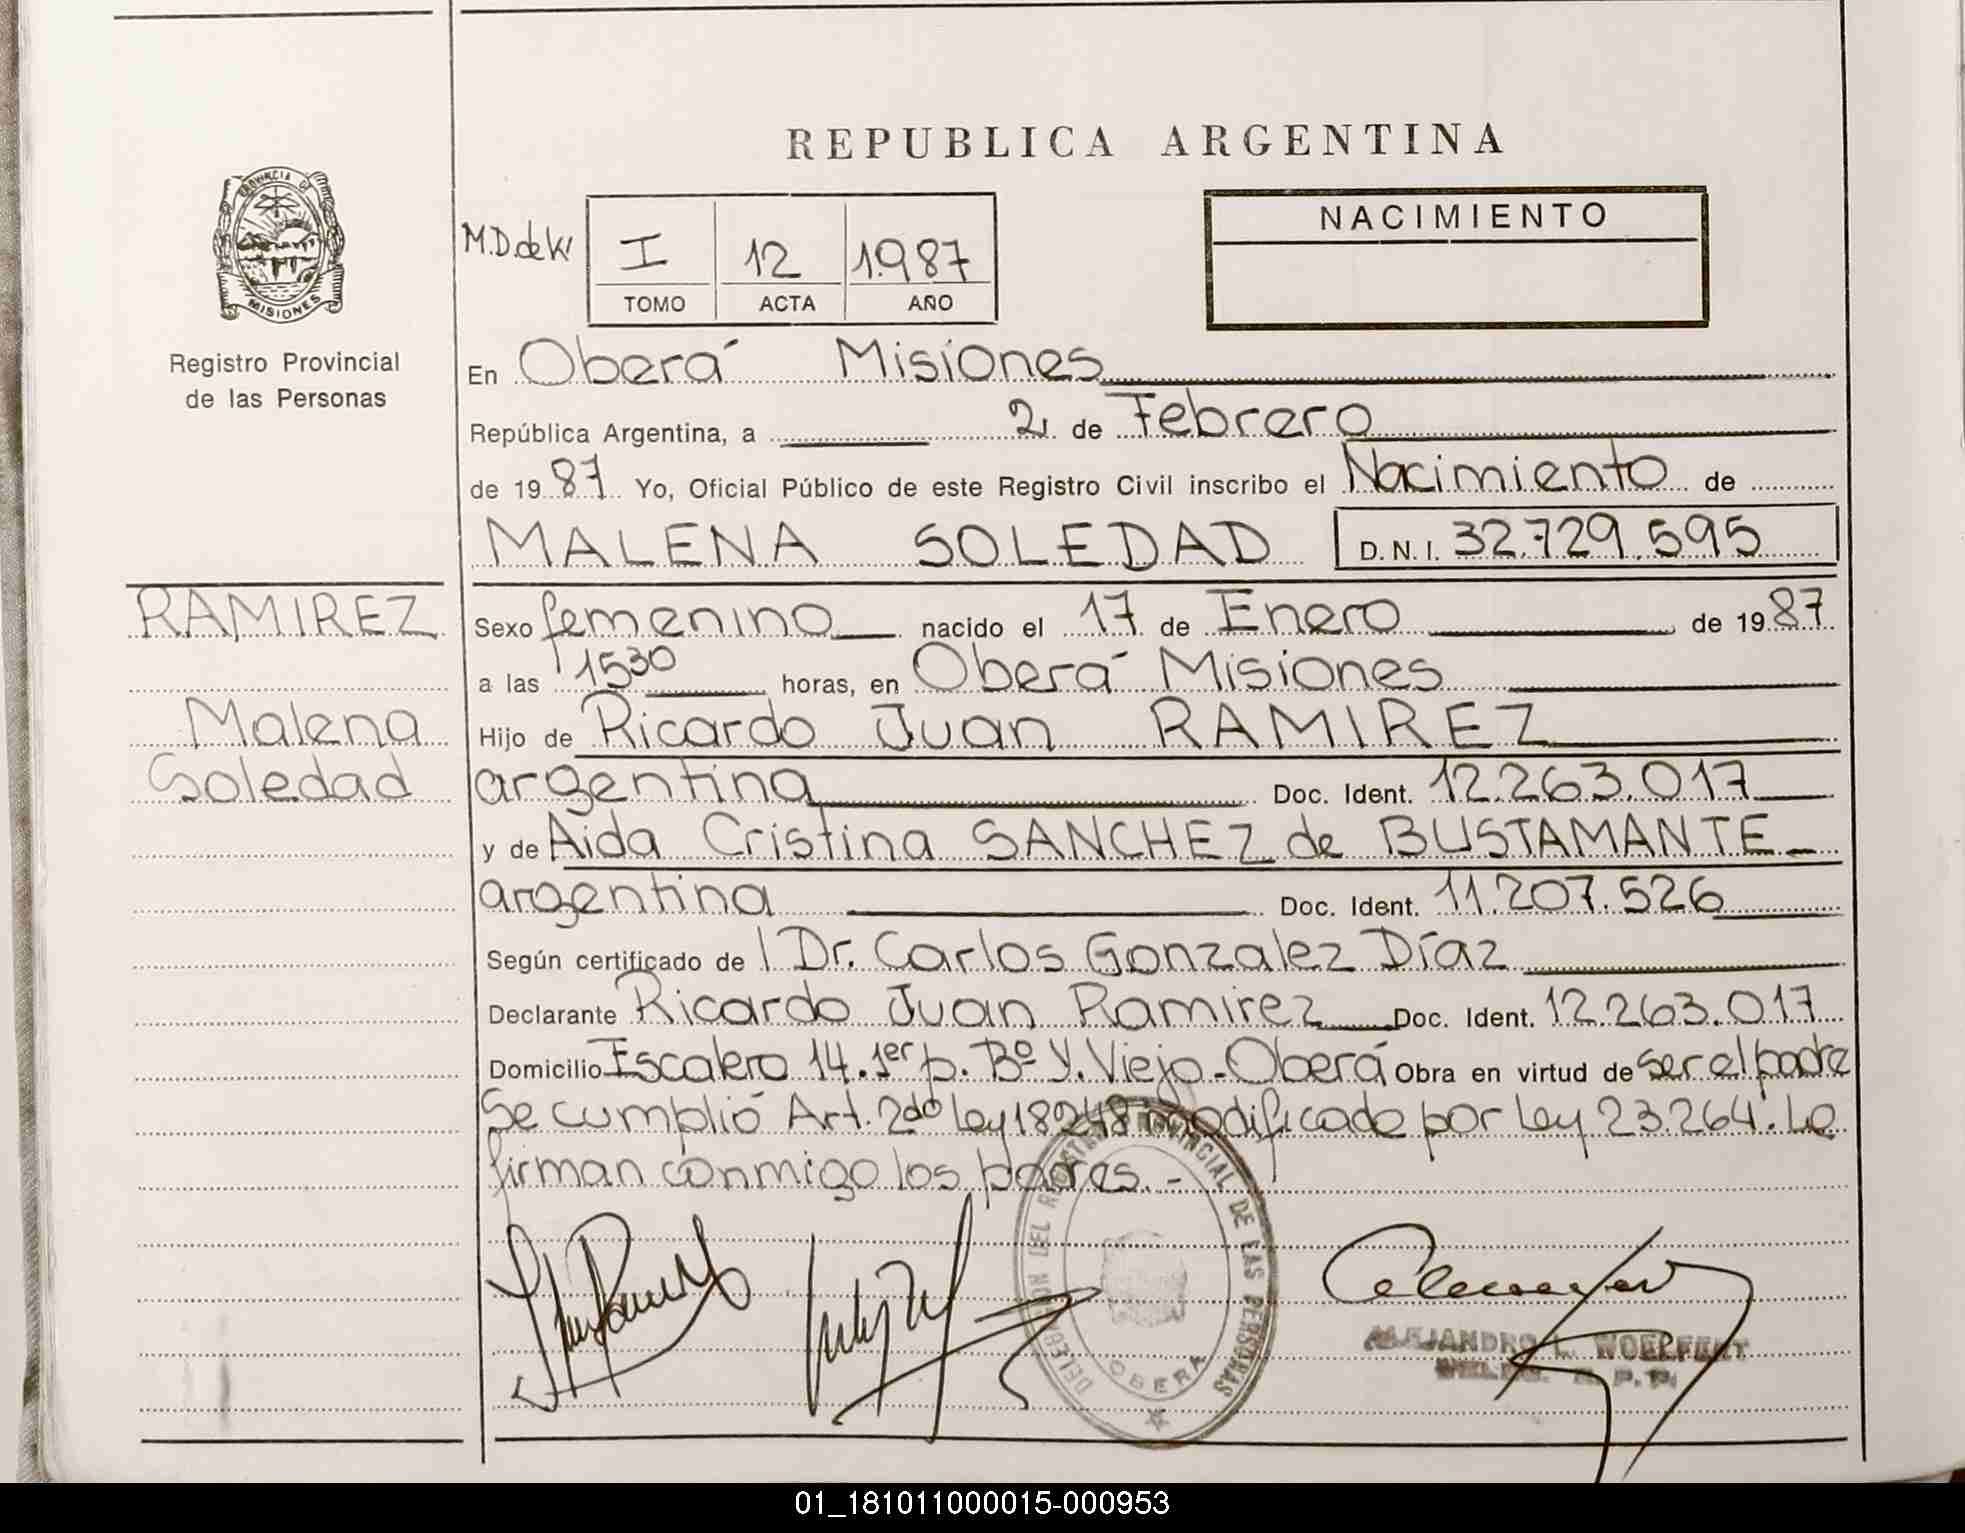 REPUBLICA ARGENTINA
PROVINCIA DE
MISIONES
Registro Provincial
de las Personas
M.D. de
I 12 1987
TOMO ACTA AÑO
NACIMIENTO
En Oberá Misiones
República Argentina, a 2 de Febrero
de 1987 Yo, Oficial Público de este Registro Civil inscribo el Nacimiento de
MALENA SOLEDAD D.N.I. 32.729.595
RAMIREZ
Malena
Soledad
Sexo femenino nacido el 17 de Enero de 1987
a las 1530 horas, en Oberá Misiones
Hijo de Ricardo Juan RAMIREZ
argentina Doc. Ident. 12.263.017
y de Aida Cristina SANCHEZ de BUSTAMANTE
argentina Doc. Ident. 11.207.526
Según certificado de l Dr. Carlos Gonzalez Díaz
Declarante Ricardo Juan Ramirez Doc. Ident. 12.263.017
Domicilio Escalera 14. 1er p. Bº Y. Viejo - Oberá Obra en virtud de ser el padre
Se cumplió Art. 2do Ley 18248 modificado por Ley 23.264. Lo
firman conmigo los padres. -
DELEGACION DEL REGISTRO PROVINCIAL DE LAS PERSONAS
OBERA
ALEJANDRO L. WOERFERT
DELEG. R.P.P.
01_181011000015-000953